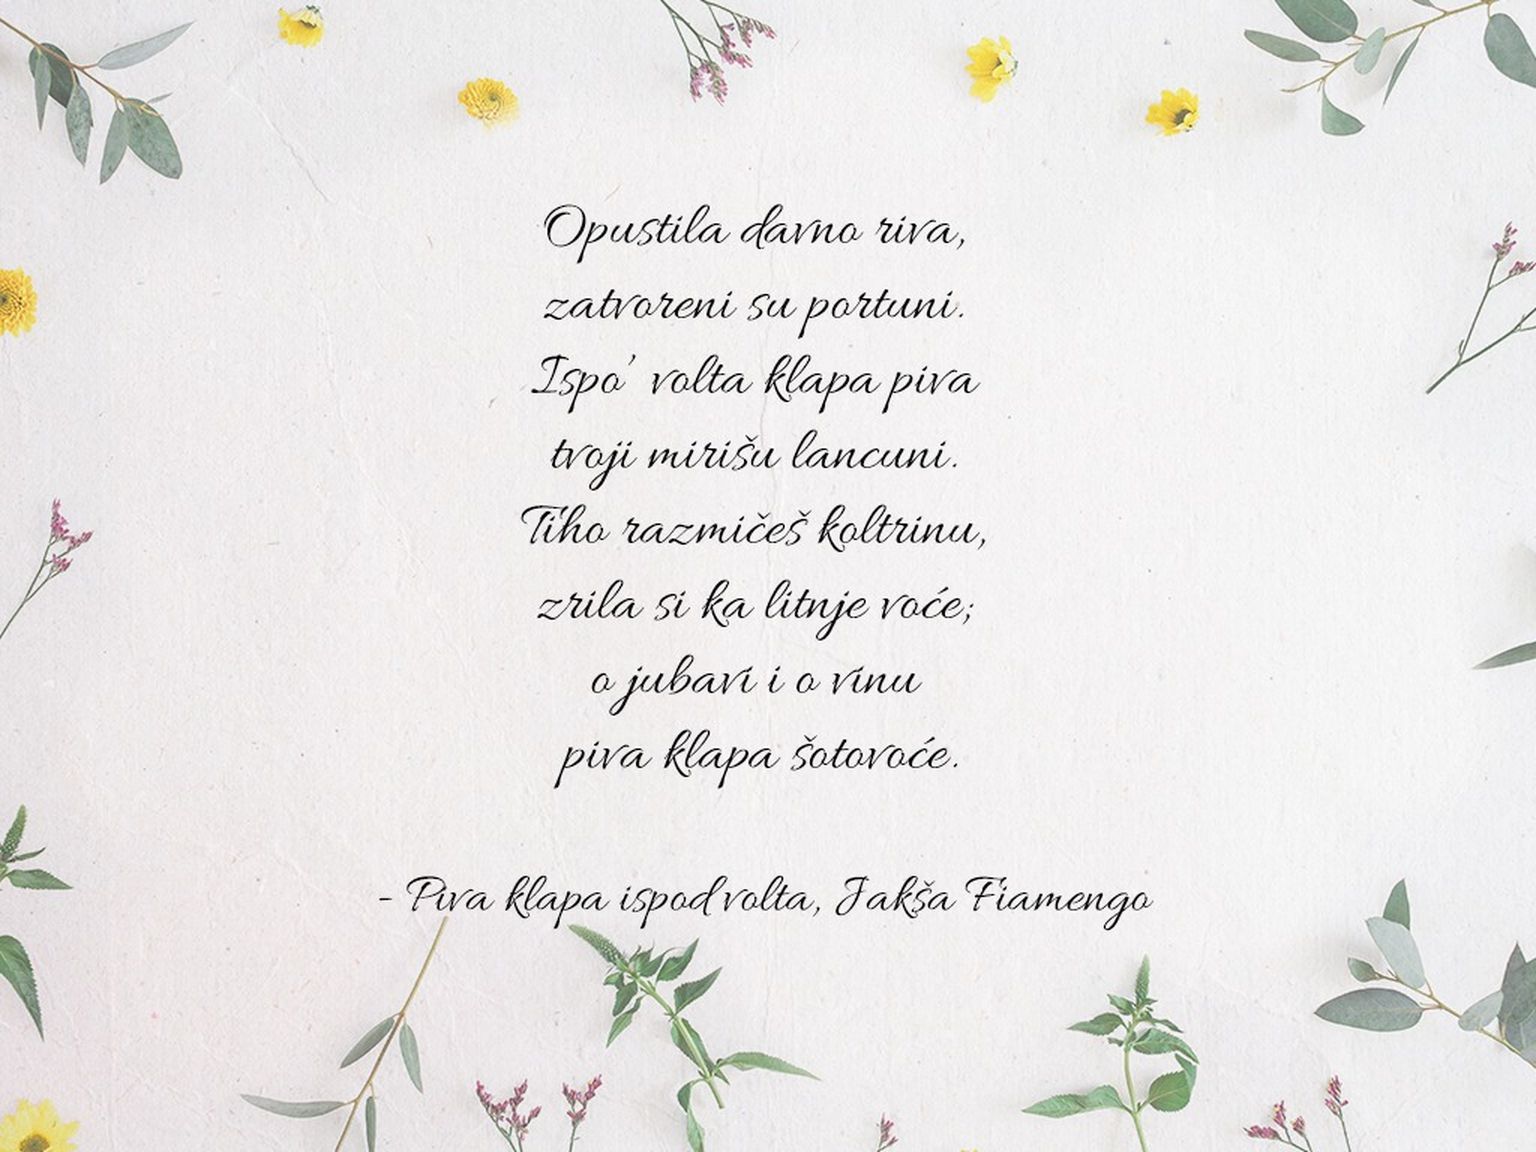 Opustila davno riva,
zatvoreni su portuni.
Ispo' volta klapa piva
tvoji mirišu lancuni.
Tiho razmičeš koltrinu,
zrila si ka litnje voće;
o jubavi i o vinu
piva klapa šotovoće.
- Piva klapa ispod volta, Jakša Fiamengo